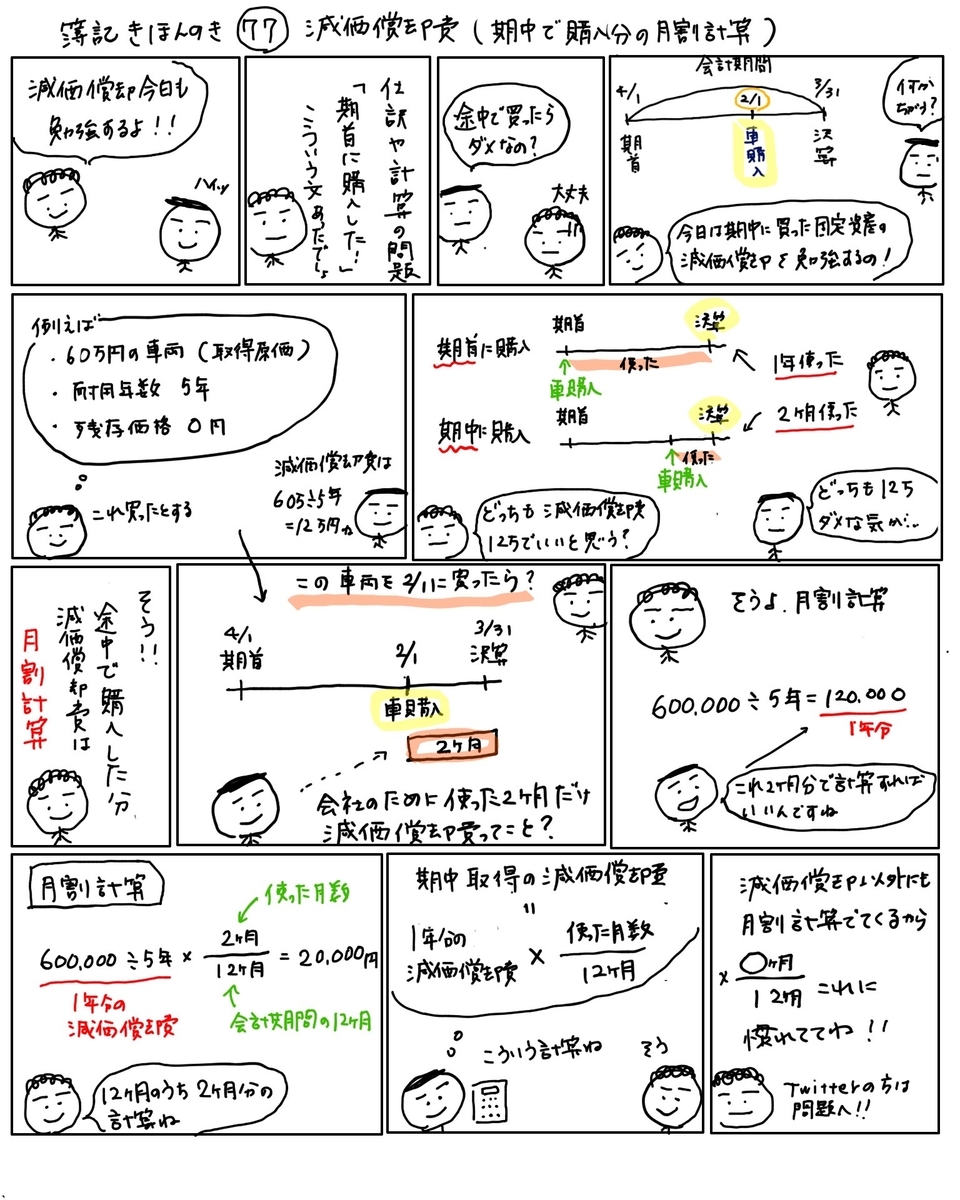 簿記きほんのき 77 減価償却費 (期中で購入分の月割計算)
減価償却今日も
勉強するよ!!
ハイッ
仕訳や計算の問題
「期首に購入した!」
こういう文あったでしょ
途中で買ったら
ダメなの?
大丈夫
会計期間
4/1
2/1
3/31
期首
車購入
決算
何が
ちがう?
今日は期中に買った固定資産の
減価償却を勉強するの!
例えば
・60万円の車両 (取得原価)
・耐用年数 5年
・残存価格 0円
これ買ったとする
減価償却費は
60万÷5年
=12万円ね
期首
決算
期首に購入
使った
1年使った
車購入
期首
決算
期中に購入
2ヶ月使った
使った
車購入
どっちも減価償却費
12万でいいと思う?
どっちも12万
ダメな気が…
そう!!
途中で購入した分
減価償却費は
月割計算
この車両を2/1に買ったら?
4/1
期首
2/1
3/31
決算
車購入
2ヶ月
会社のために使った2ヶ月だけ
減価償却費ってこと?
そうよ.月割計算
600,000÷5年=120,000
1年分
これ2ヶ月分で計算すれば
いいんですね
月割計算
使った月数
600,000÷5年 × 2ヶ月/12ヶ月 = 20,000円
1年分の
減価償却費
会計期間の12ヶ月
12ヶ月のうち2ヶ月分の
計算ね
期中取得の減価償却費
=
1年分の
減価償却費 × 使った月数/12ヶ月
こういう計算ね
そう
減価償却以外にも
月割計算でてくるから
×○ヶ月/12ヶ月 これに
慣れててね!!
Twitterの方は
問題へ!!